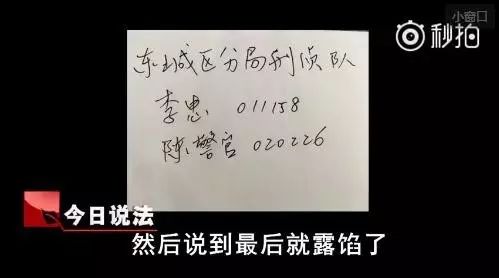 小窗口
秒拍
东城区分局刑侦队
李忠 011158
陈警官 020226
今日说法
然后说到最后就露馅了